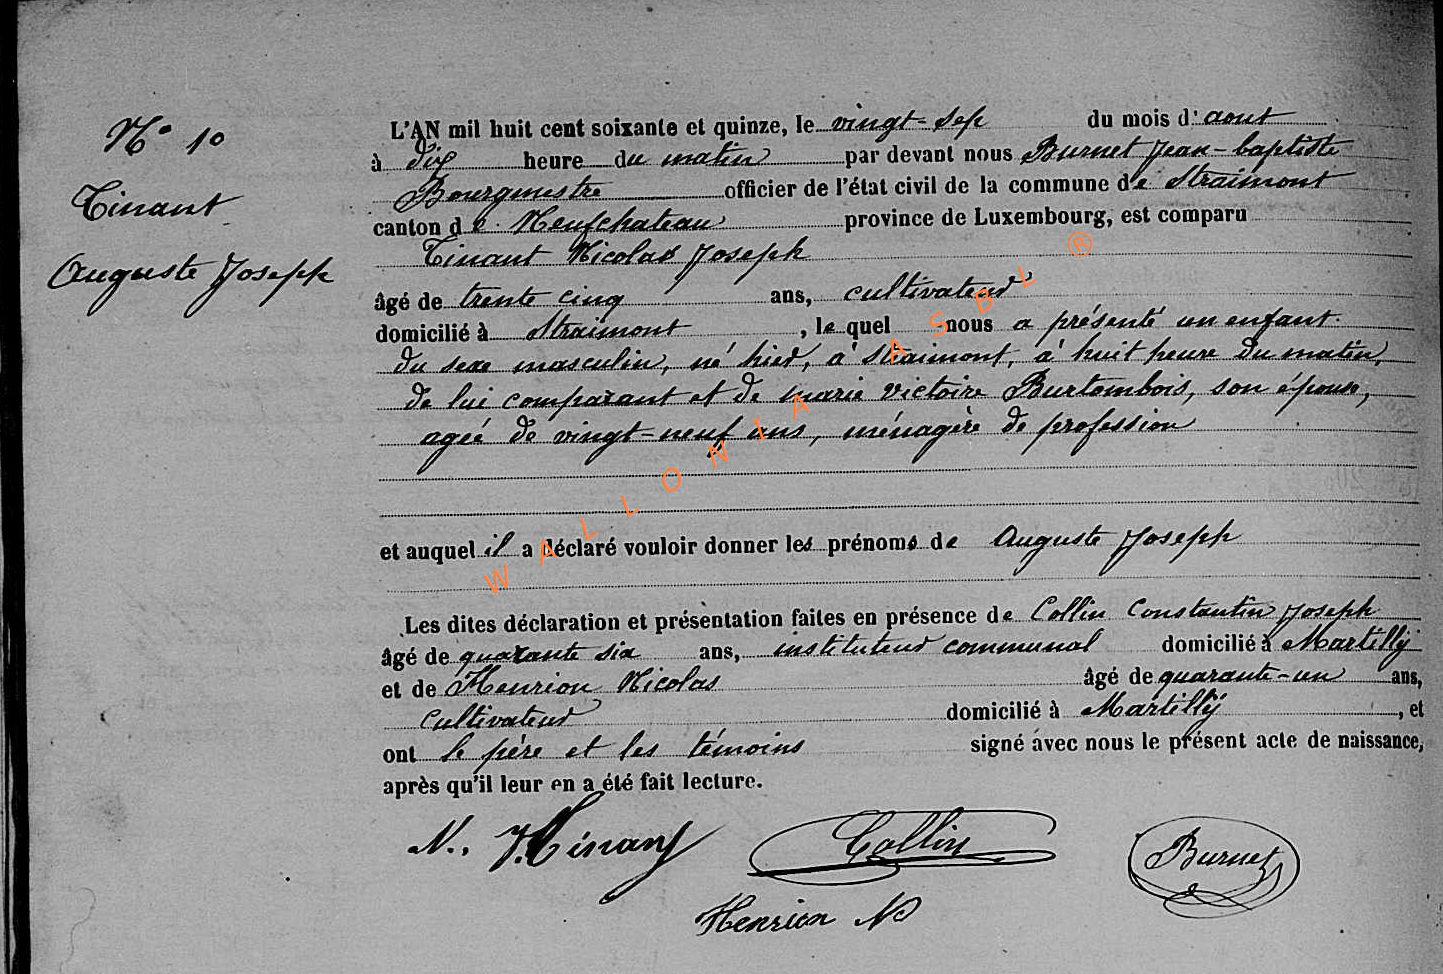 N° 10
Tinant
Auguste Joseph
L'AN mil huit cent soixante et quinze, le vingt-sep du mois d'aout
à dix heure du matin par devant nous Burnet Jean-baptiste
Bourgmestre officier de l'état civil de la commune de Straimont
canton de Neufchateau province de Luxembourg, est comparu
Tinant Nicolas Joseph
âgé de trente cinq ans, cultivateur
domicilié à Straimont, le quel nous a présenté un enfant
du sexe masculin, né hier, à Straimont, à huit heure du matin,
de lui comparant et de marie victoire Burtombois, son épouse,
agée de vingt-neuf ans, ménagère de profession
et auquel il a déclaré vouloir donner les prénoms de Auguste Joseph
Les dites déclaration et présentation faites en présence de Collin Constantin Joseph
âgé de quarante six ans, instituteur communal domicilié à Martilly
et de Henrion Nicolas âgé de quarante-un ans,
cultivateur domicilié à Martilly, et
ont le père et les témoins signé avec nous le présent acte de naissance,
après qu'il leur en a été fait lecture.
N. J. Tinant Collin Burnet
Henrion N
WALLONIA ASBL ®